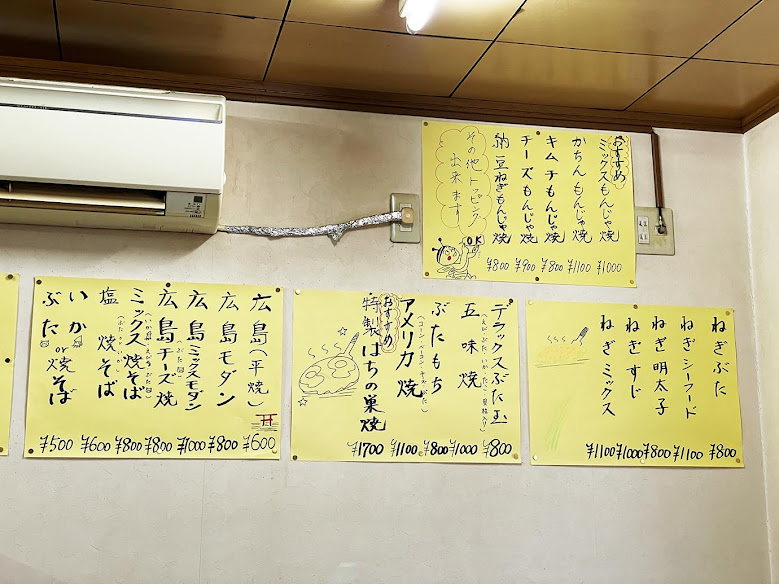 おすすめ
ミックスもんじゃ焼 ¥1000
かちんもんじゃ焼 ¥1100
キムチもんじゃ焼 ¥800
チーズもんじゃ焼 ¥900
納豆ねぎもんじゃ焼 ¥800
その他トッピング
出来ます
OK
ねぎぶた ¥800
ねぎシーフード ¥1100
ねぎ明太子 ¥800
ねぎすじ ¥1000
ねぎミックス ¥1100
デラックスぶた玉 ¥800
五味焼 ¥1000
ぶたもち ¥800
アメリカ焼 ¥1100
おすすめ
特製はちの巣焼 ¥1700
広島(平焼) ¥600
広島モダン ¥800
広島ミックスモダン ¥1000
広島チーズ焼 ¥800
ミックス焼そば ¥800
塩焼そば ¥600
いか or ぶた 焼そば ¥500